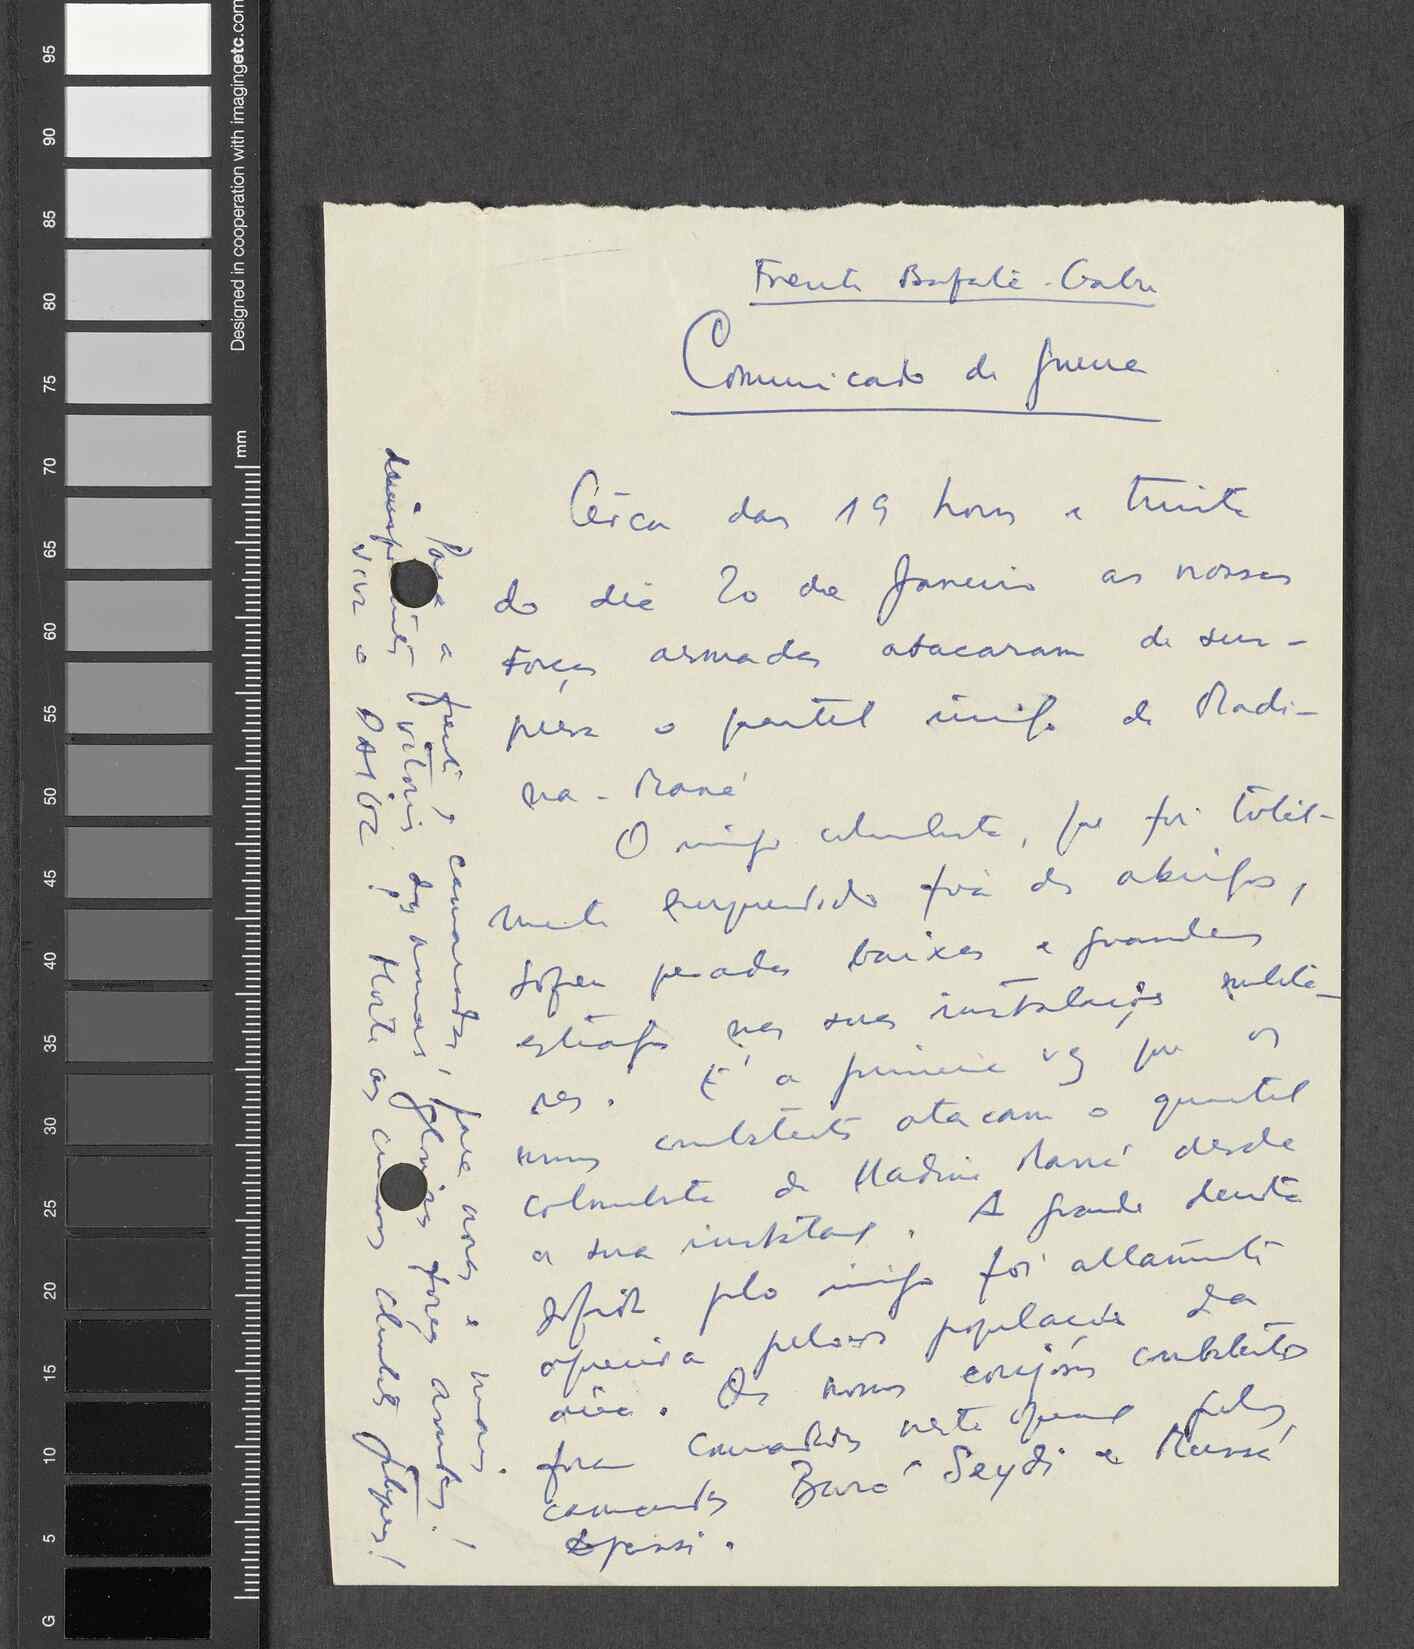 Frente Bafatá-Gabu
Comunicado de guerra
Cêrca das 19 horas e trinta
do dia 20 de Janeiro as nossas
forças armadas atacaram de sur-
presa o quartel inimigo de Madi-
na-Mané
O inimigo colonialista, que foi total-
mente surpreendido fora dos abrigos,
sofreu pesadas baixas e grandes
estragos nas suas instalações milita-
res. É a primeira vez que os
nossos combatentes atacam o quartel
colonialista de Madina Mané desde
a sua instalação. A grande derrota
sofrida pelo inimigo foi altamente
apreciada pelas populações da
área. Os nossos corajosos combatentes
foram comandados nesta operação pelos
camaradas Buró Seydi e Mussá
Para a frente, camaradas, para novas e mais
vitórias das nossas gloriosas forças armadas!
Viva o PAIGC! Morte aos colonialistas portugueses!
Designed in cooperation with imagingetc.com
mm
95
90
85
80
75
70
65
60
55
50
45
40
35
30
25
20
15
10
5
G